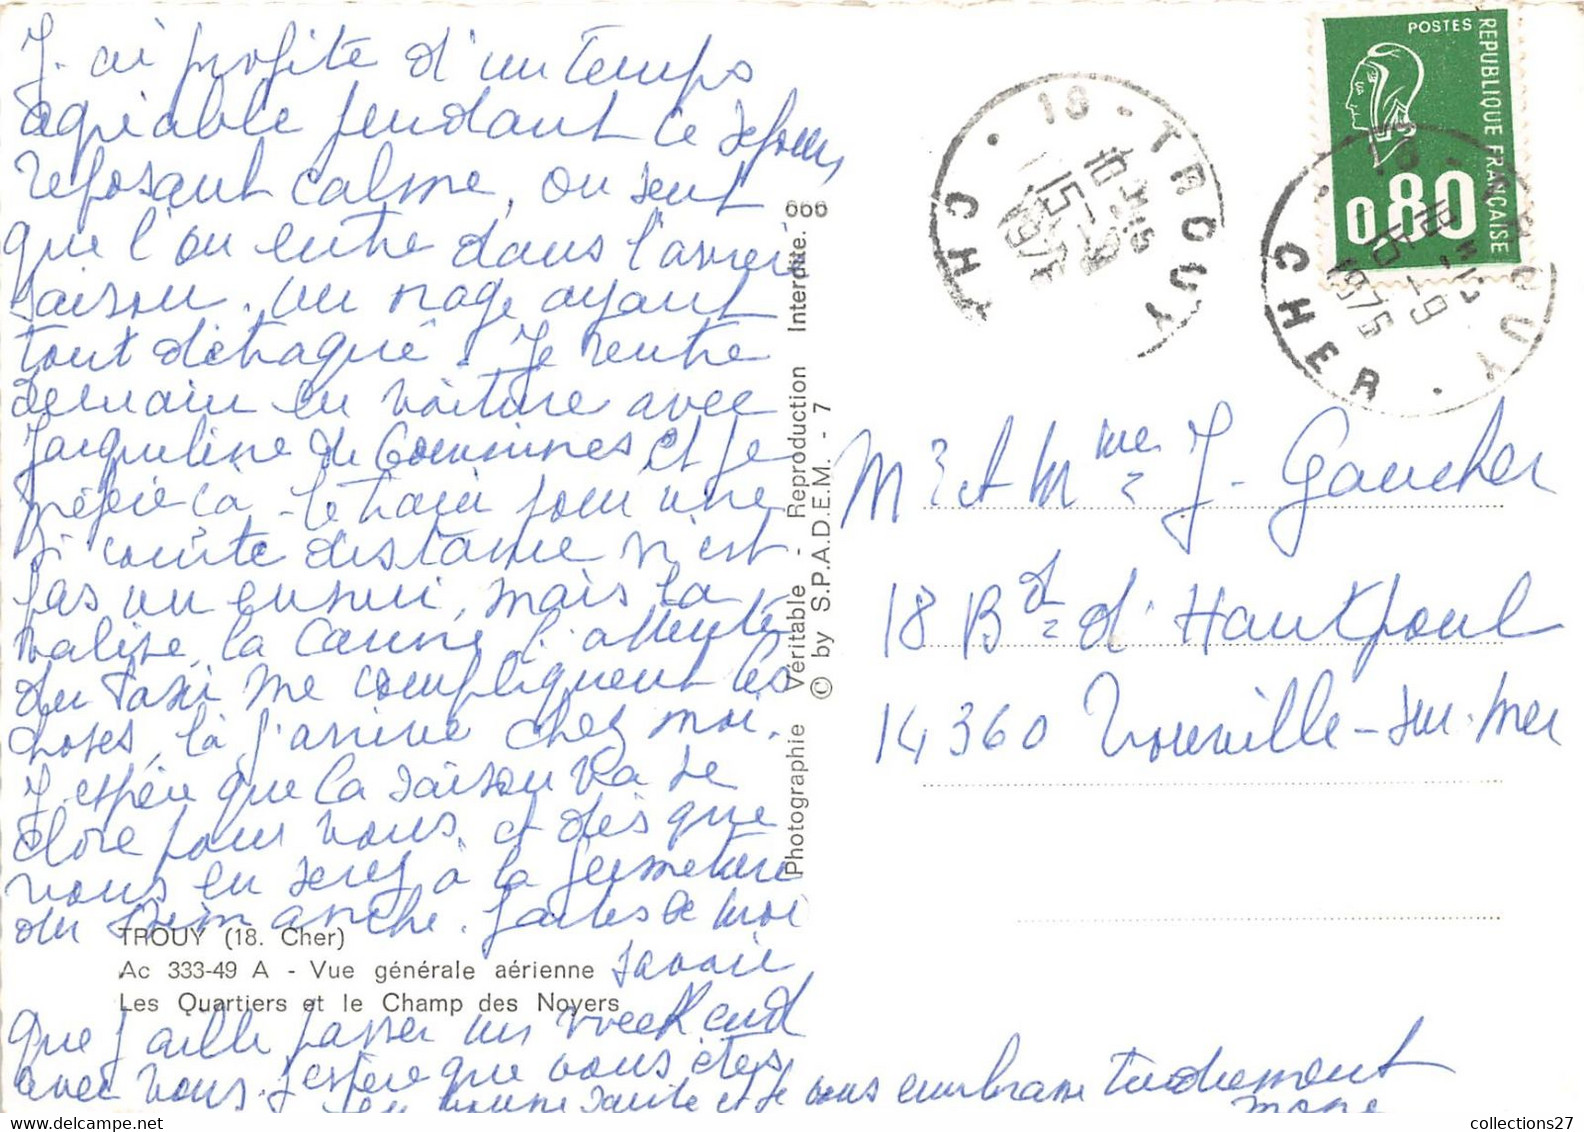 J'ai profité d'un temps
agréable pendant ce séjour
reposant calme, on sent
que l'on entre dans l'arrière
saison. Un orage ayant
tout détraqué. Je rentre
demain en voiture avec
Jacqueline de Commines et je
préfère ça - le train pour une
si courte distance n'est
pas un ennui, mais la
valise, la canne, l'attente
du taxi me compliquent les
choses, là j'arrive chez moi.
J'espère que la saison va se
clore pour vous, et dès que
vous en serez à la fermeture
du Dimanche. faites le moi
savoir
que j'aille passer un week end
avec vous. J'espère que vous êtes
en bonne santé et je vous embrasse tendrement
TROUY (18. Cher)
Ac 333-49 A - Vue générale aérienne
Les Quartiers et le Champ des Noyers
Photographie Véritable - Reproduction Interdite. 666
© by S.P.A.D.E.M. - 7
POSTES
REPUBLIQUE FRANÇAISE
0,80
18 - TROUY
CHER
15 - 9
1975
18 - TROUY
CHER
15 - 9
1975
Mr et Mme J. Gaucher
18 Bd d'Hautpoul
14360 Trouville-sur-Mer
collections27